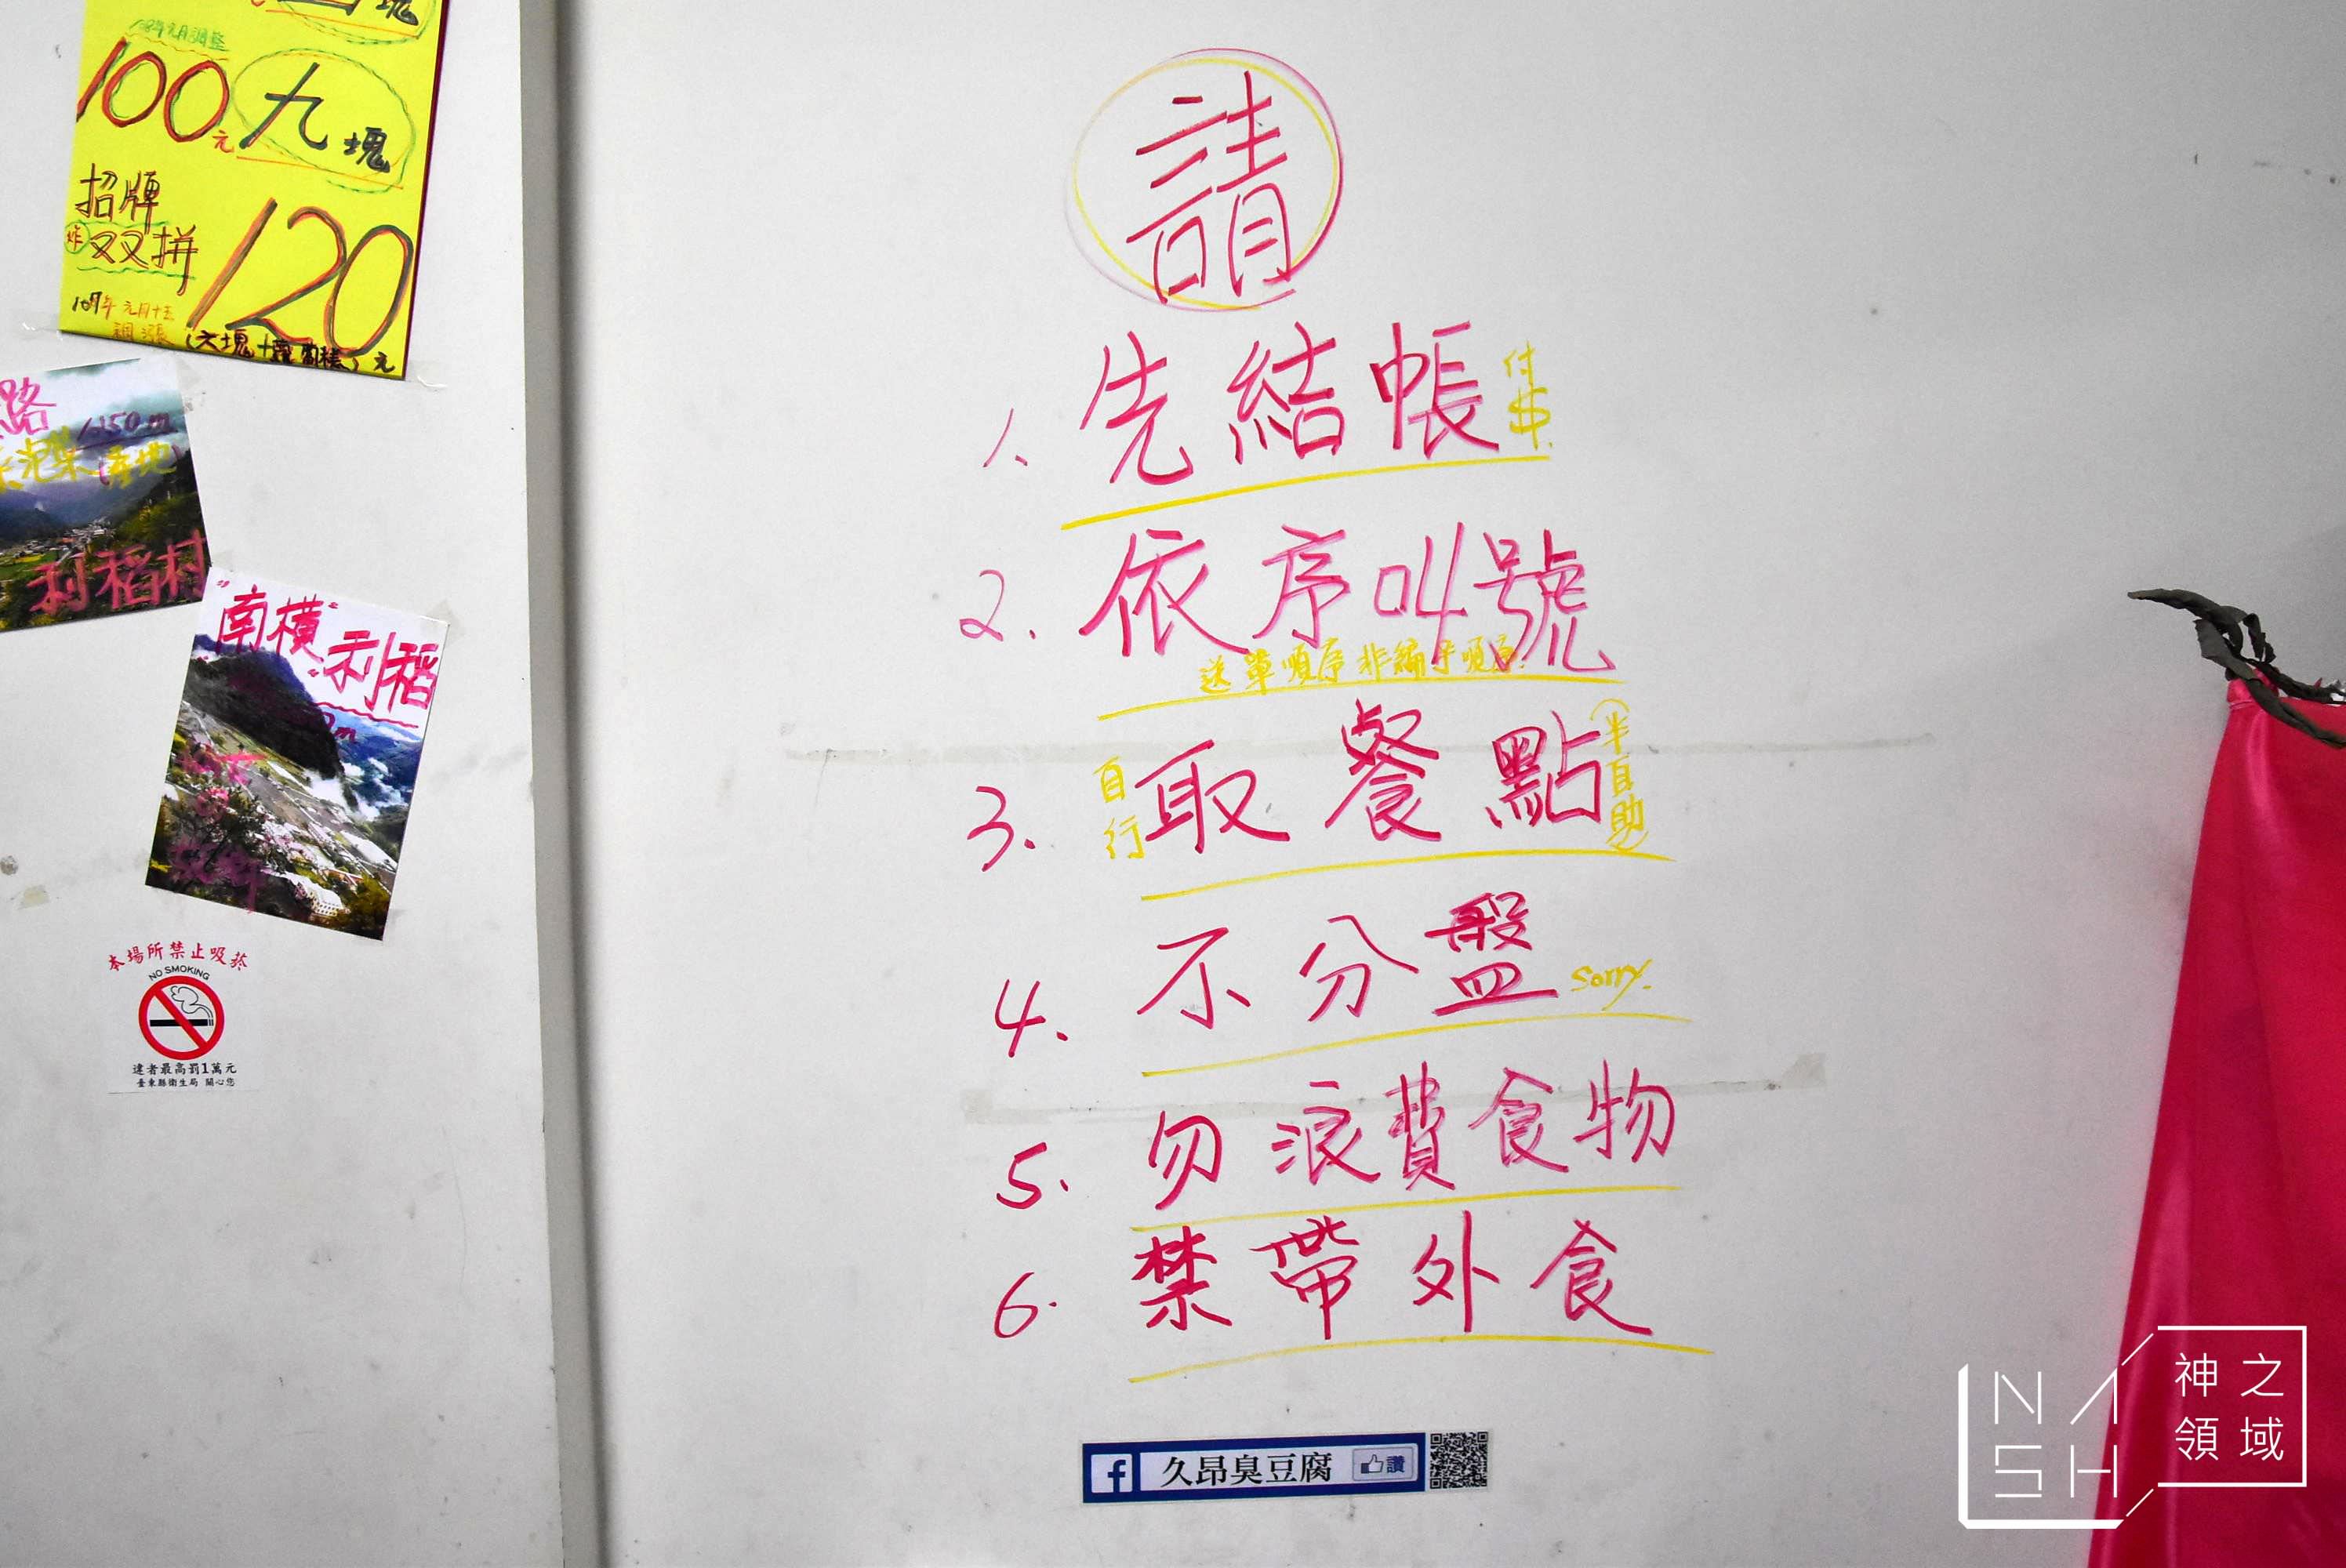 塊
108年元月調整
100元 九塊
招牌
炸 双双拼
120
107年元月十五
調漲
元
路
1150m
泡菜
利稻村
"南橫"
利稻
本場所禁止吸菸
NO SMOKING
違者最高罰1萬元
臺東縣衛生局 關心您
請
1、先結帳 付$.
2. 依序叫號
送單順序非編號順序.
3. 自行取餐點(半自助)
4. 不分盤 sorry.
5. 勿浪費食物
6. 禁帶外食
f 久昂臭豆腐 讚
NASH
神之
領域